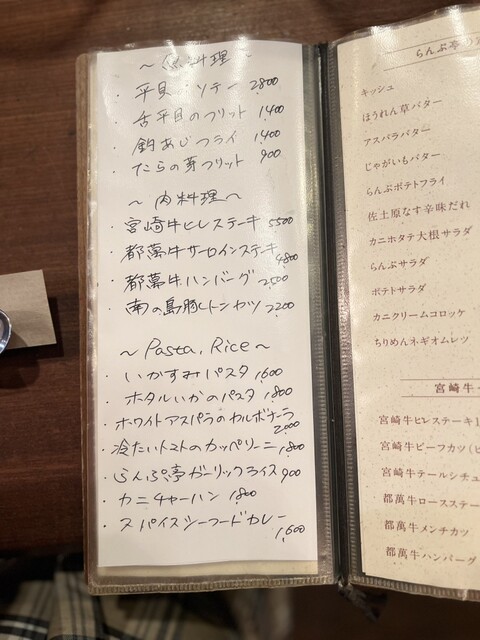 〜 魚料理 〜
・ 平貝 ソテー 2800
・ 舌平目のフリット 1,400
・ 釣あじフライ 1,400
・ たらの芽フリット 900
〜 肉料理 〜
・ 宮崎牛ヒレステーキ 5500
・ 都萬牛サーロインステーキ 4800
・ 都萬牛ハンバーグ 2,500
・ 南の島豚ヒレトンカツ 2200
〜 Pasta, Rice 〜
・ いかすみパスタ 1,600
・ ホタルいかのパスタ 1,800
・ ホワイトアスパラのカルボナーラ 2,000
・ 冷たいトマトのカッペリーニ 1,800
・ らんぷ亭ガーリックライス 900
・ カニチャーハン 1,800
・ スパイスシーフードカレー 1,600
らんぷ亭の
キッシュ
ほうれん草バター
アスパラバター
じゃがいもバター
らんぷポテトフライ
佐土原なす辛味だれ
カニホタテ大根サラダ
らんぷサラダ
ポテトサラダ
カニクリームコロッケ
ちりめんネギオムレツ
宮崎牛
宮崎牛ヒレステーキ1
宮崎牛ビーフカツ(ヒ
宮崎牛テールシチュ
都萬牛ロースステー
都萬牛メンチカツ
都萬牛ハンバーグ